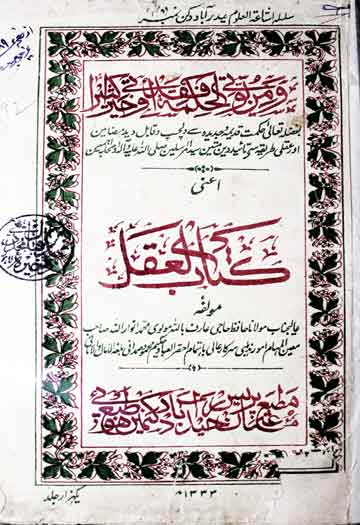 سلسلہ اشاعۃ العلوم حیدرآباد دکن نمبر
ومن یؤتی الحکمۃ فقد اوتی خیرا کثیرا
بفضلہ تعالی حکمت قدیمہ وجدیدہ سے دلچسپ وقابل دید مضامین
اور عقلی طریقہ سے تائید دین متین سید المرسلین صلی اللہ علیہ وآلہ وصحبہ اجمعین
اعنی
کتاب العقل
مولفہ
عالیجناب مولانا حافظ حاجی عارف باللہ مولوی محمد انوار اللہ صاحب
معین المہام امور مذہبی سرکار عالی باہتمام احقر العباد
مطبع
حیدرآباد دکن میں طبع ہوئی
۱۳۳۳
یکہزار جلد